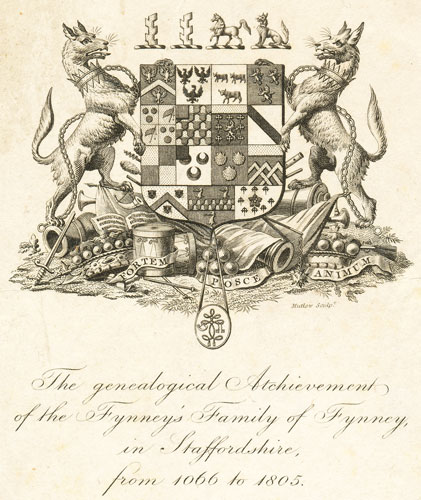 FORTEM POSCE ANIMUM
Mutlow Sculpt.
The genealogical Atchievement
of the Fynney's Family of Fynney,
in Staffordshire,
from 1066 to 1805.